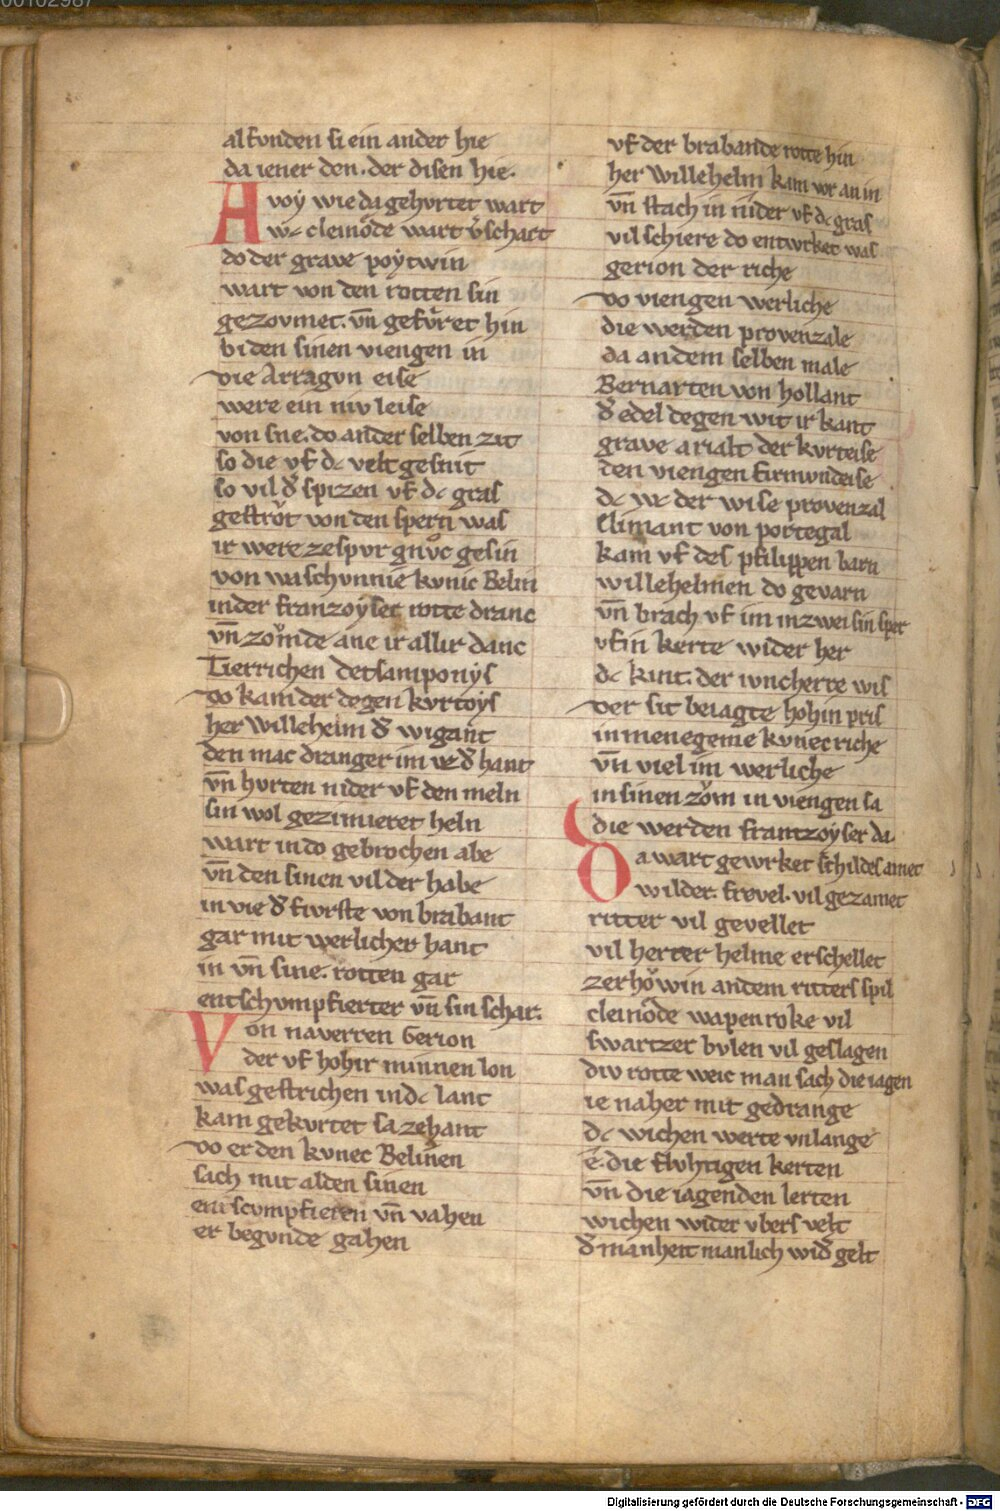 00102987
alfvnden si ein ander hie
da iener den. der disen hie.
Avoÿ wie da gehvrtet wart
wc cleinôde wart v̓schart
do der grave poÿtwin
wart von den rotten sin
gezovmet. vn̄ gefvͤret hin
biden sinen viengen in
die Arragvn eise
were ein niv leise
von sne. do ander selben zit
so die vf dc velt gesnit
so vil d̓ spizen vf dc gras
gestrôt von den spern was
ir were zespvr gnvͦc gesin
von waschvnnie kvnic Belin
inder franzoÿser rotte dranc
vn̄ zoͮmde ane ir allir danc
Tierrichen detsamponẏs
do kam der degen kvrtoẏs
her Willehelm d̓ wigant
den mac dranger im vz d̓ hant
vn̄ hvrten nider vf den meln
sin wol gezimieret heln
wart indo gebrochen abe
vn̄ den sinen vil der habe
in vie d̓ fivrste von brabant
gar mit werlicher hant
in vn̄ sine. rotten gar
entschvmpfierter vn̄ sin schar.
Von naverren Gerion
der vf hohir minnen lon
was gestrichen indc lant
kam gekvrtet sa zehant
do er den kvnec Belinen
sach mit alden sinen
entscvmpfieren vn̄ vahen
er begvnde gahen
vf der brabande rotte hin
her Willehelm kam vor an in
vn̄ stach in nider vf dc gras
vil schiere do entwrket was
gerion der riche
do viengen werliche
die werden provenzale
da andem selben male
Bernarten von hollant
d̓ edel degen wit ir kant
grave arialt der kvrteise
den viengen firmondeise
dc wc der wise provenzal
Climant von portegal
kam vf des philippen barn
willehelmen do gevarn
vn̄ brach vf im inzwei sin sper
vf in kerte wider her
dc kint. der ivncherre wis
der sit beiagte hohin pris
in menegeme kvnecriche
vn̄ viel im werliche
in sinen zoͮm in viengen sa
die werden frantzoyser da.
Da wart gewrket schildes amet
wilder. frevel. vil gezamet
ritter vil gevellet
vil herter helme erschellet
zerhoͮwin andem ritters spil
cleinôde wapenroke vil
swartzer bvlen vil geslagen
div rotte weic man sach die iagen
ie naher mit gedrange
dc wichen werte vnlange
é. die flvhtigen kerten
vn̄ die iagenden lerten
wichen wider vbers velt
d̓ manheit manlich wid̓ gelt
Digitalisierung gefördert durch die Deutsche Forschungsgemeinschaft - DFG